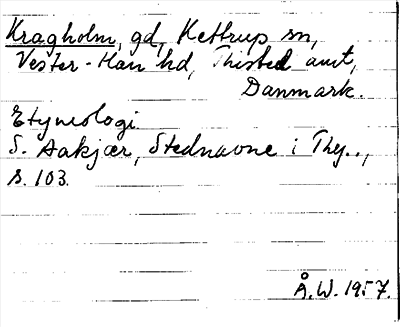 Kragholm, gd, Kettrup sn,
Vester-Han hd, Thisted amt,
Danmark.
Etymologi
S. Aakjær, Stednavne i Thy..,
s. 103.
Å.W. 1957.